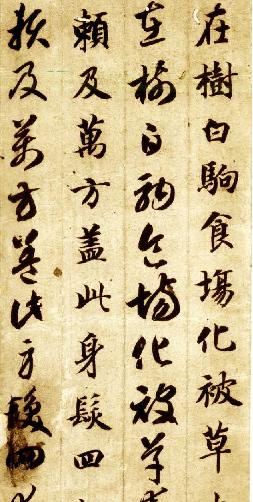 在樹白駒食塲化被草
在樹白駒食場化被草
頼及萬方盖此身髮四
頼及萬方盖此身髮四